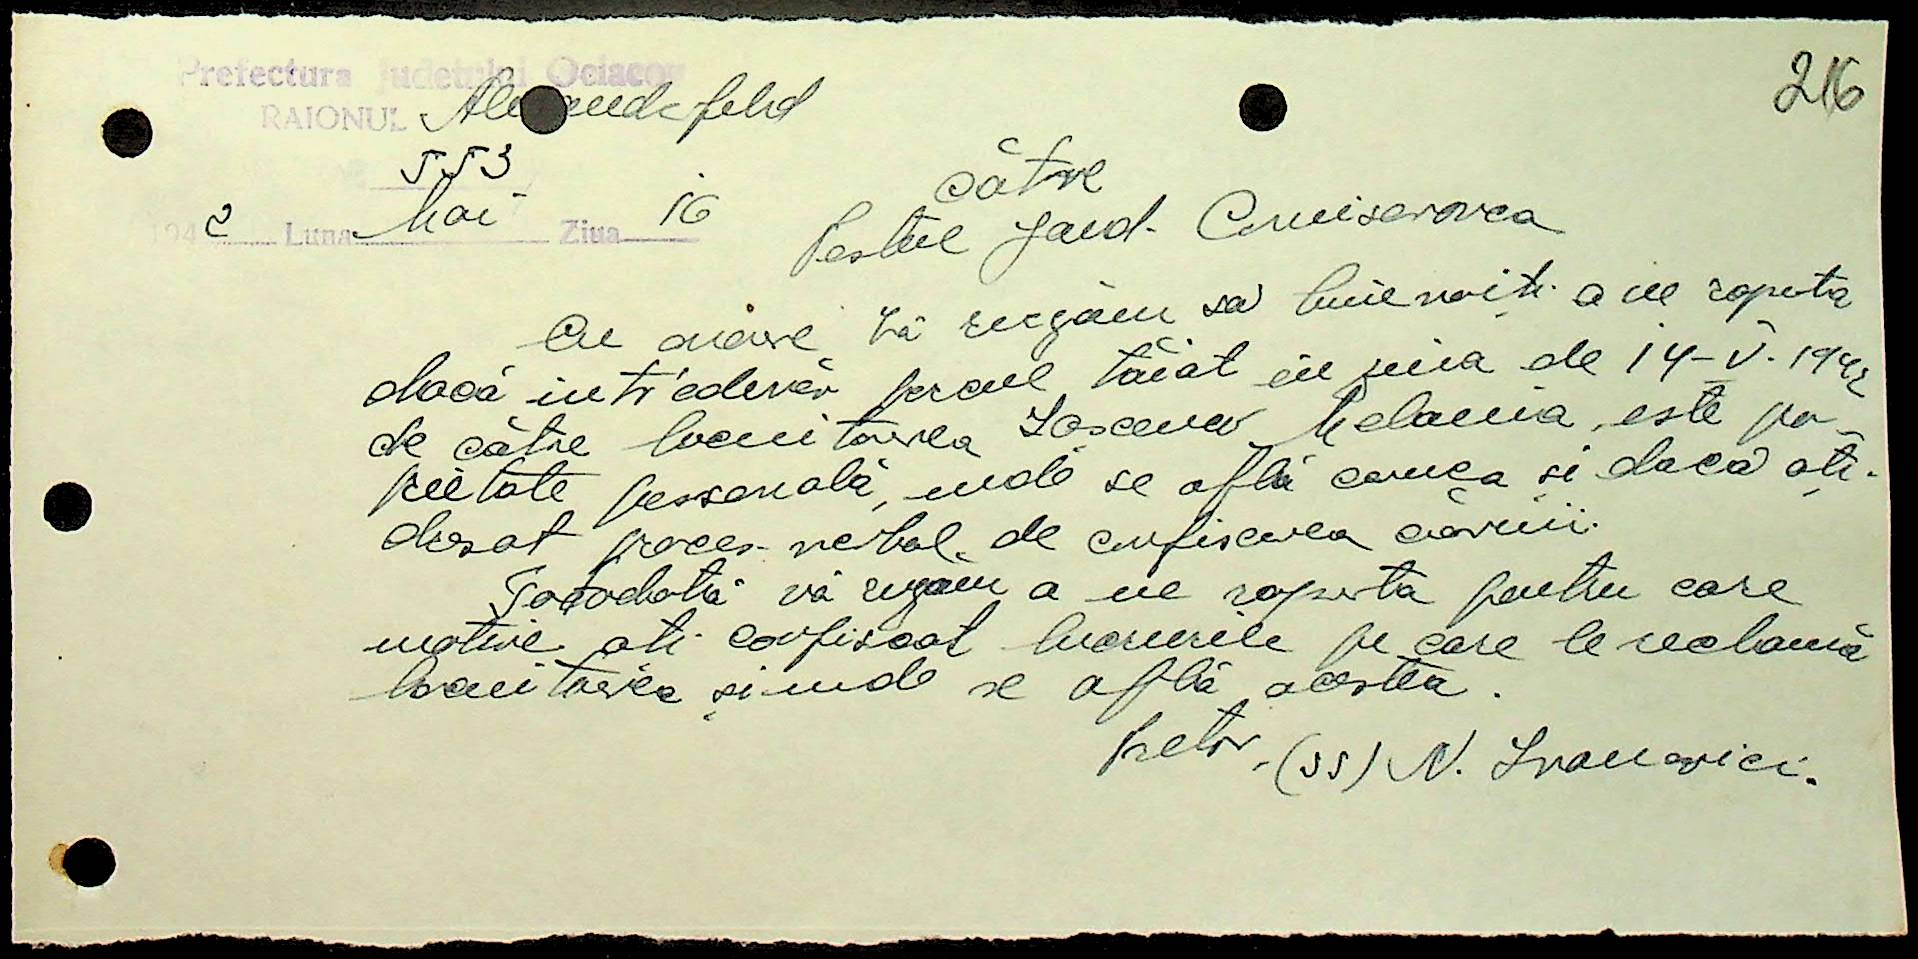 Prefectura Judetului Ociacov
216
RAIONUL Alexanderfeld
553
1942 Luna Mai Ziua 16
către
Postul Jand. Comisarovca
Cu onoare Vă rugăm să bine voiți a ne raporta
dacă intr'adevăr porcul tăiat în ziua de 14-V-1942
de către locuitoarea Melania este pro-
prietate personală, unde se află carnea și dacă ați
dresat proces-verbal de confiscarea cărnii.
Totodată vă rugăm a ne raporta pentru care
motive ați confiscat lucrurile pe care le reclamă
locuitoarea și unde se află acestea.
Pretor, (ss) N. Ivanovici.